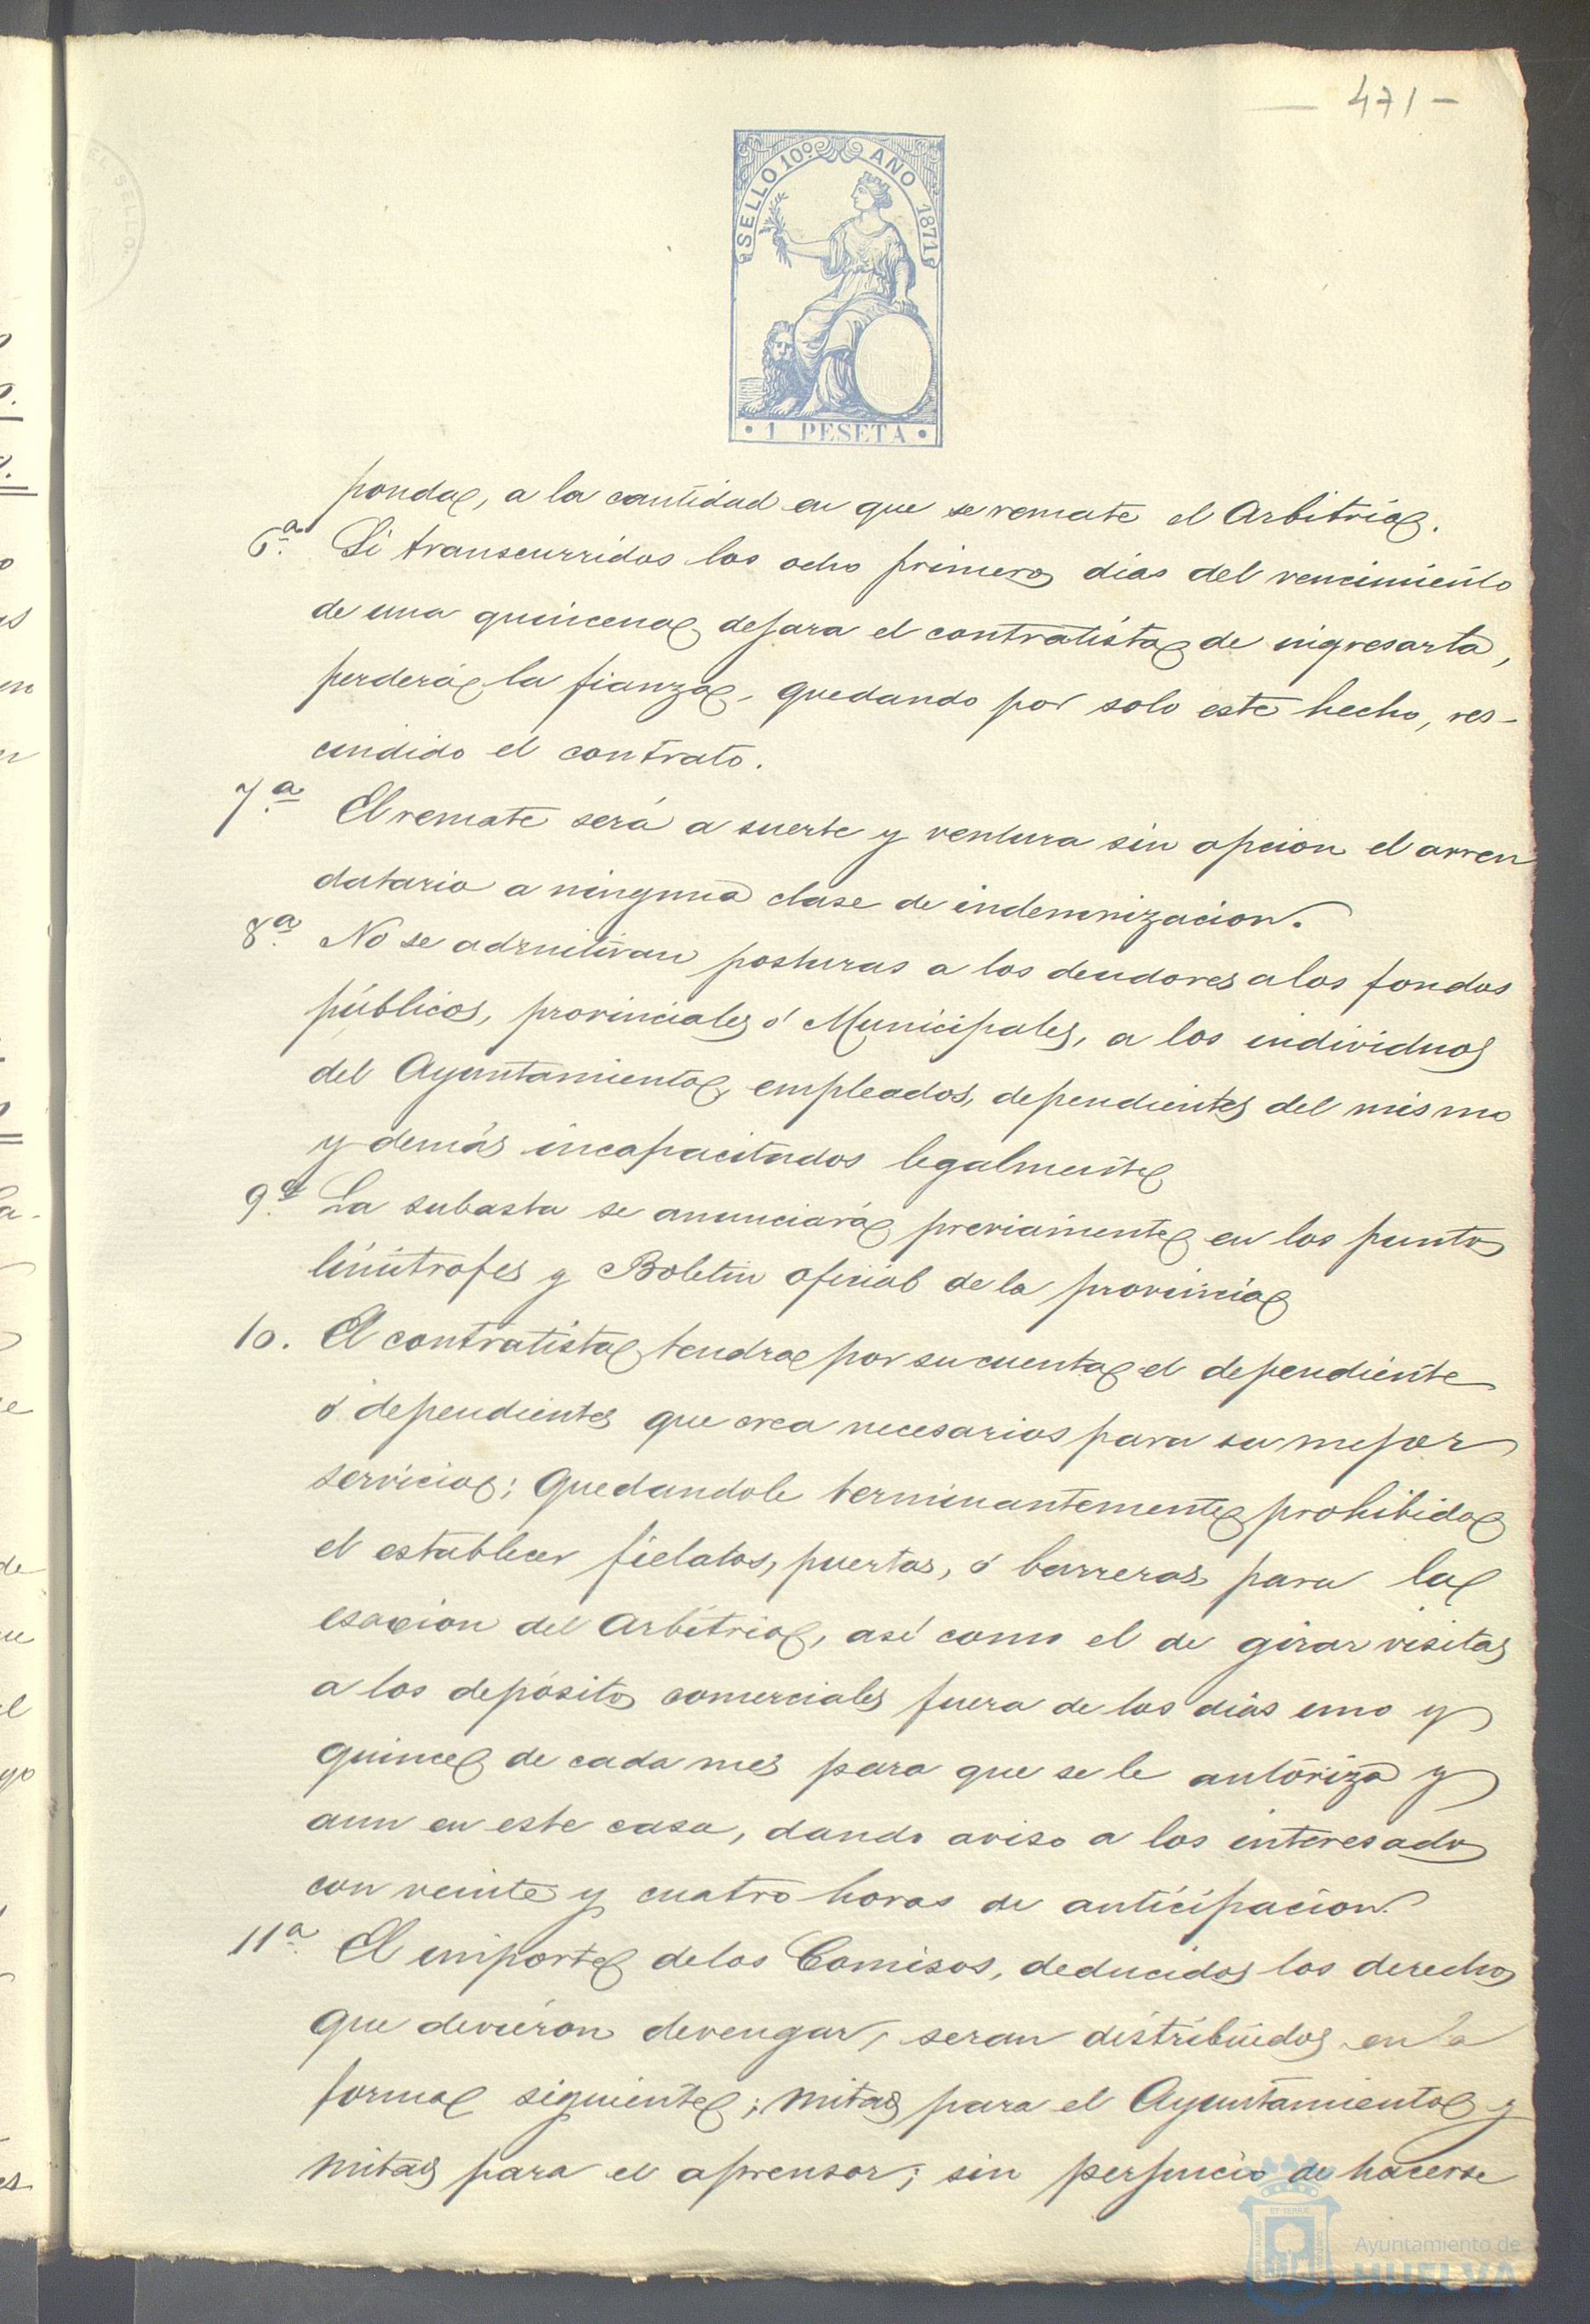 — 471 –
SELLO 10º AÑO 1871
• 1 PESETA •
ponda, a la cantidad en que se remate el Arbitrio.
6ª. Si transcurridos los ocho primeros dias del vencimiento
de una quincena dejara el contratista de ingresarla,
perderá la fianza, quedando por solo este hecho, res-
cindido el contrato.
7ª. El remate será a suerte y ventura sin opcion el arren
datario a ninguna clase de indemnizacion.
8ª. No se admitiran posturas a los deudores a los fondos
públicos, provinciales ó Municipales, a los individuos
del Ayuntamiento, empleados, dependientes del mismo
y demás incapacitados legalmente
9ª. La subasta se anunciará previamente en los puntos
limitrofes y Boletin oficial de la provincia
10. El contratista tendra por su cuenta el dependiente
ó dependientes que crea necesarios para su mejor
servicio; quedandole terminantemente prohibido
el establecer fielatos, puertas, ó barreras para la
esaccion del Arbitrio, asi como el de girar visitas
a los depósitos comerciales fuera de los dias uno y
quince de cada mes para que se le autoriza y
aun en este caso, dando aviso a los interesados
con veinte y cuatro horas de anticipacion.
11ª. El importe de los Comisos, deducidos los derechos
que devieron devengar, seran distribuidos en la
forma siguiente; mitad para el Ayuntamiento y
mitad para el aprensor; sin perjuicio de hacerse
Ayuntamiento de
HUELVA